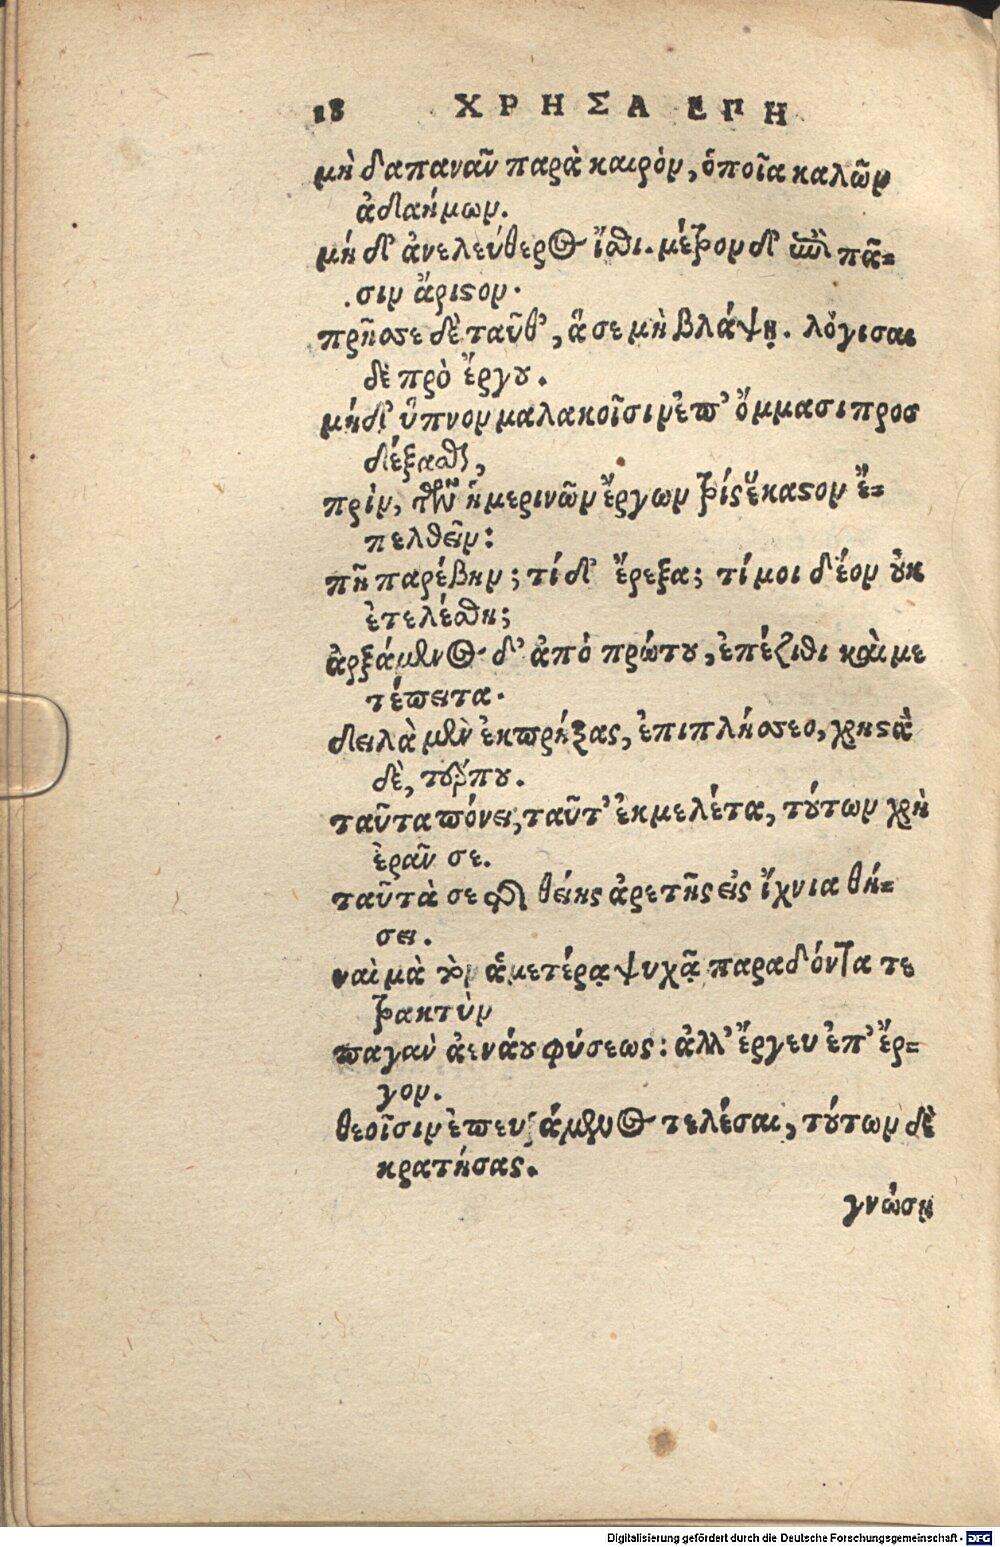 18 ΧΡΗΣΑ ΕΠΗ
μὴ δαπανᾶν παρὰ καιρὸν, ὁποῖα καλῶν
ἀδαήμων.
μή δ' ἀνελεύθερος ἴσθι. μέτρον δ' ἐπὶ πᾶ-
σιν ἄριστον.
πρῆσσε δὲ ταῦθ', ἅ σε μὴ βλάψῃ. λόγισαι
δὲ πρὸ ἔργου.
μήδ' ὕπνον μαλακοῖσιν ἐπ' ὄμμασι προσ
δέξασθαι,
πρὶν, τῶν ἡμερινῶν ἔργων τρίς ἕκαστον ἔ-
πελθεῖν:
πῆ παρέβην; τί δ' ἔρεξα; τί μοι δέον οὐκ
ἐτελέσθη;
ἀρξάμενος δ' ἀπὸ πρώτου, ἐπέξιθι καὶ με
τέπειτα.
δειλὰ μὲν ἐκπρήξας, ἐπιπλήσσεο, χρηστὰ
δὲ, τέρπου.
ταῦτα πόνει, ταῦτ' ἐκμελέτα, τούτων χρὴ
ἐρᾶν σε.
ταῦτά σε τῆς θείης ἀρετῆς εἰς ἴχνια θή-
σει.
ναὶ μὰ τὸν ἁμετέρᾳ ψυχᾷ παραδόντα τε
τρακτὺν
παγὰν ἀενάου φύσεως: ἀλλ' ἔργευ ἐπ' ἔρ-
γον.
θεοῖσιν ἐπευξάμενος τελέσαι, τούτων δὲ
κρατήσας.
γνώσῃ
Digitalisierung gefördert durch die Deutsche Forschungsgemeinschaft - DFG